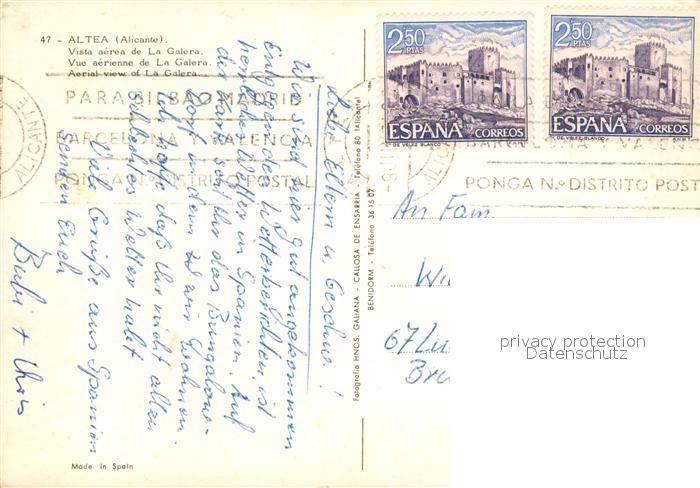 47 - ALTEA (Alicante).
Vista aérea de La Galera.
Vue aérienne de La Galera.
Aerial view of La Galera.
PARA BILBAO MADRID
BARCELONA Y VALENCIA
PONGA N.º DISTRITO POSTAL
ALICANTE
2,50 PTAS
ESPAÑA CORREOS
C. DE VELEZ BLANCO
2,50 PTAS
ESPAÑA CORREOS
C. DE VELEZ BLANCO
PONGA N.º DISTRITO POST
Liebe Eltern u. Gesche!
Wir sind hier gut angekommen
Entgegen den Wetterberichten ist
herrliches Wetter in Spanien. Auf
der Karte seht Ihr das Bungalow-
dorf in dem wir wohnen.
Ich hoffe daß Ihr nicht allzu
schlechtes Wetter habt
Viel Grüße aus Spanien
senden Euch
Bubi + Chris
Fotografía HNOS. GALIANA - CALLOSA DE ENSARRIA - Teléfono 80 (Alicante)
BENIDORM - Teléfono 36 15 07
An Fam.
Wi
67 Lu
Br
privacy protection
Datenschutz
Made in Spain